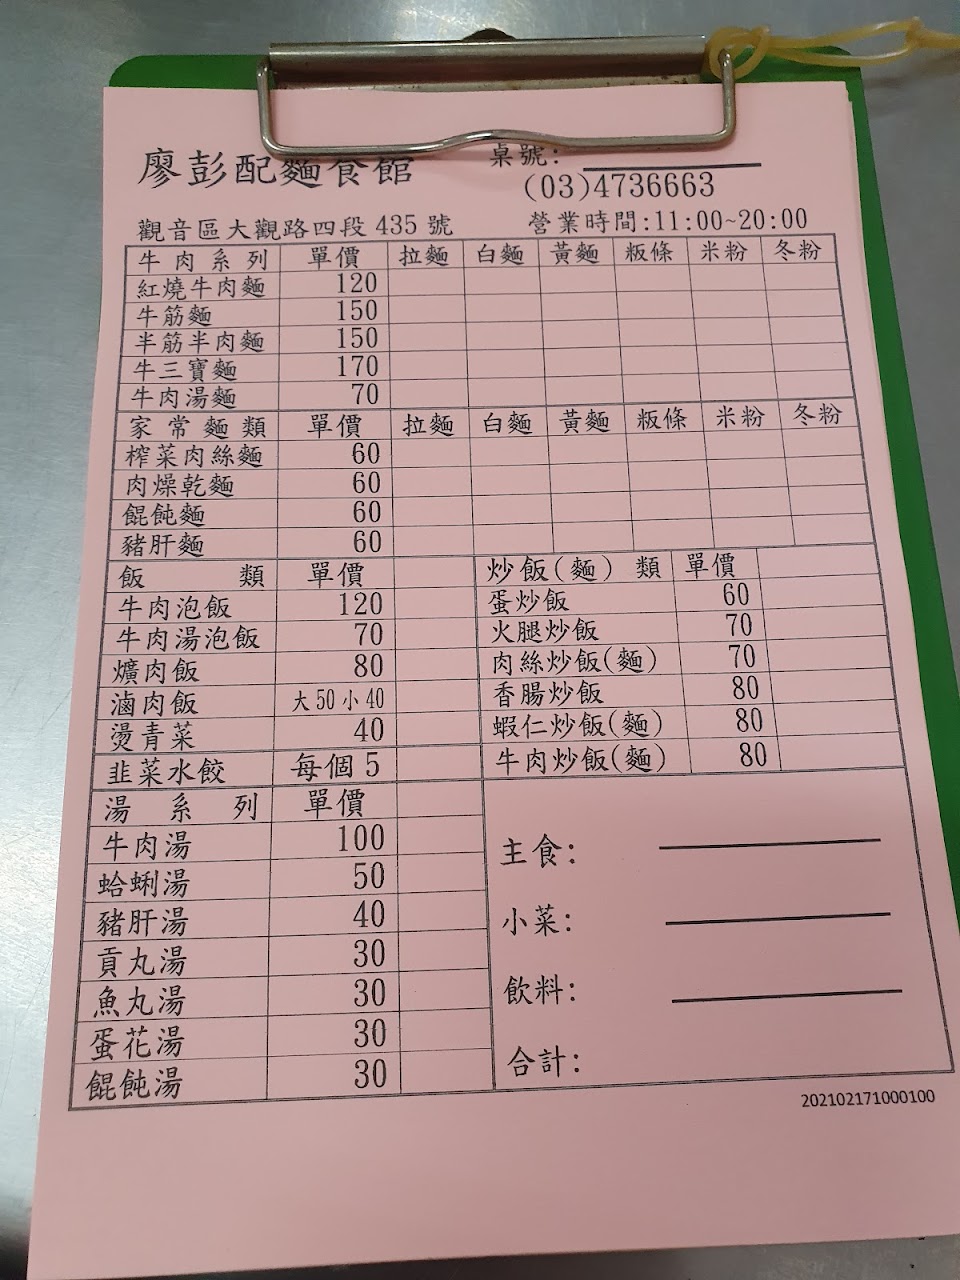 廖彭配麵食館 桌號:
(03)4736663
觀音區大觀路四段 435 號 營業時間:11:00~20:00
牛肉系列 單價 拉麵 白麵 黃麵 粄條 米粉 冬粉
紅燒牛肉麵 120
牛筋麵 150
半筋半肉麵 150
牛三寶麵 170
牛肉湯麵 70
家常麵類 單價 拉麵 白麵 黃麵 粄條 米粉 冬粉
榨菜肉絲麵 60
肉燥乾麵 60
餛飩麵 60
豬肝麵 60
飯類 單價
牛肉泡飯 120
牛肉湯泡飯 70
爌肉飯 80
滷肉飯 大 50 小 40
燙青菜 40
韭菜水餃 每個 5
炒飯(麵)類 單價
蛋炒飯 60
火腿炒飯 70
肉絲炒飯(麵) 70
香腸炒飯 80
蝦仁炒飯(麵) 80
牛肉炒飯(麵) 80
湯系列 單價
牛肉湯 100
蛤蜊湯 50
豬肝湯 40
貢丸湯 30
魚丸湯 30
蛋花湯 30
餛飩湯 30
主食:
小菜:
飲料:
合計:
202102171000100